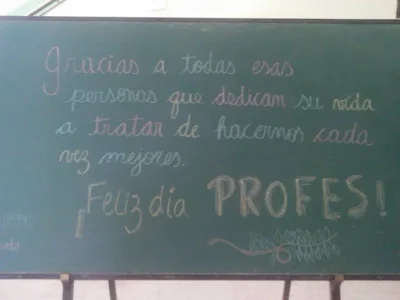 gracias a todas esas
personas que dedican su vida
a tratar de hacernos cada
vez mejores.
¡Feliz día PROFES!